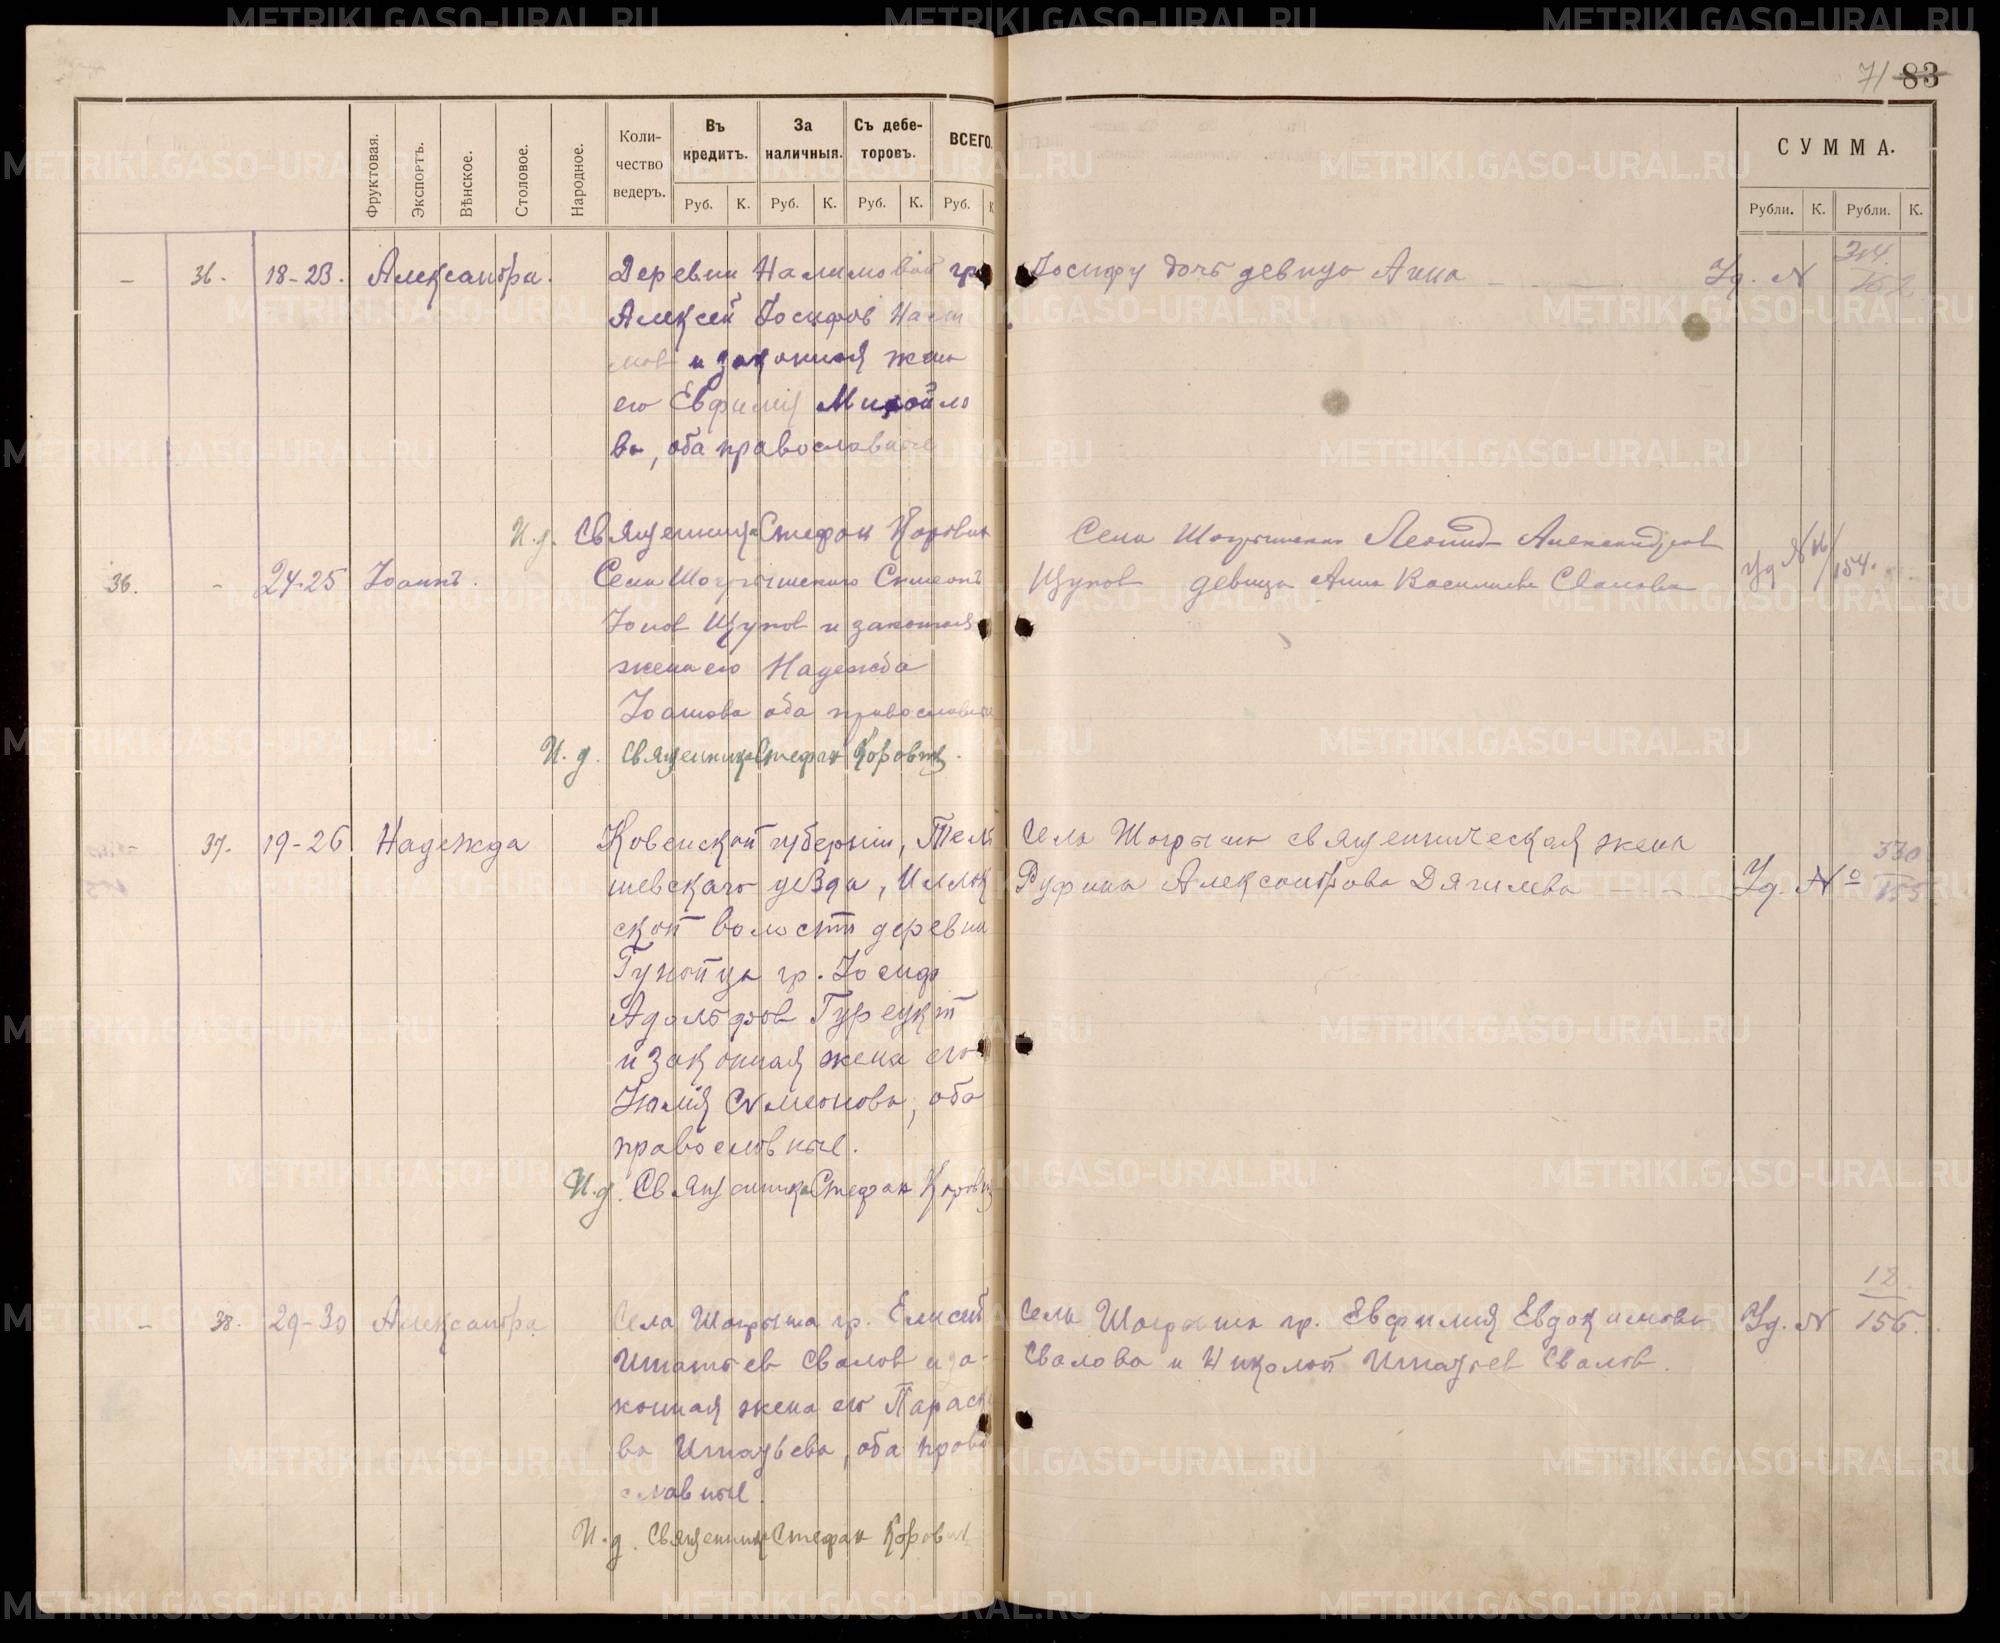 71 83
Фруктовая.
Экспортъ.
Вѣнское.
Столовое.
Народное.
Коли-
чество
ведеръ.
Въ
кредитъ.
За
наличныя.
Съ дебе-
торовъ.
ВСЕГО.
Руб. К. Руб. К. Руб. К. Руб. К
СУММА.
Рубли. К. Рубли. К.
- 36. 18-23. Александра. Деревни Налимовой гр
Алексей Іосифов Нали
мов и законная жена
его Евфимія Михайло
ва, оба православные
И.д. Священника Стефан Коровин
Іосифу дочь девица Анна Уд. N
36. - 24-25 Іоаннъ. Села Шогрышскаго Симеонъ
Іонов Щупов и законная
жена его Надежда
Іоаннова оба православные
И.д. Священника Стефан Коровин.
Села Леонид Александров
Щупов девица Анна Василиева Свалова Уд N 154.
- 37. 19-26 Надежда Ковенской губернии, Тель
шевскаго уезда,
ской волости деревни
гр. Іосиф
Адольфов
и законная жена его
Юлия Симеонова, оба
православные.
И.д. Священника Стефан Коровин
Села Шогрыша священническая жена
Руфина Александрова Дягилева Уд. № 330 155
- 38. 29-30 Александра Села Шогрыша гр. Елисей
Игнатьев Свалов и за-
конная жена его Параск
ва Игнатьева, оба право
славные.
И.д. Священника Стефан Коровин
Села Шогрыша гр. Евфимия Евдокимова
Свалова и Николай Игнатьев Свалов. Уд. N 12 156.
METRIKI.GASO-URAL.RU